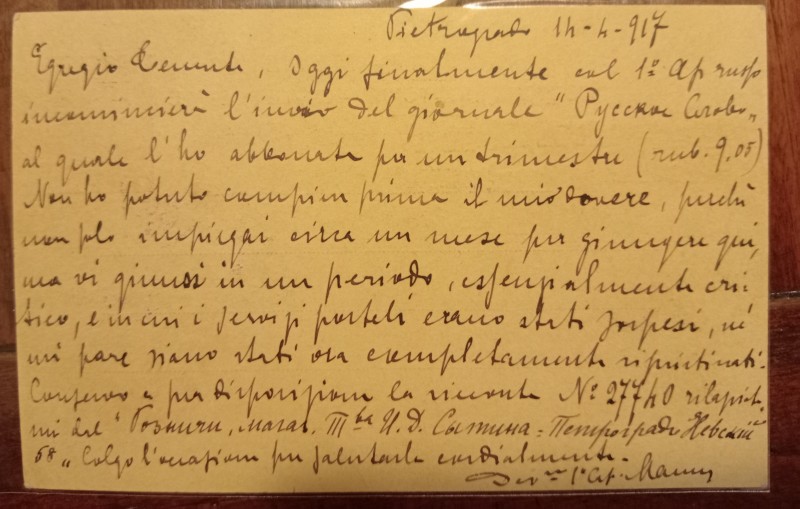 Pietrogrado 14-4-917
Egregio Tenente, Oggi finalmente col 1º Ap russo
incomincierà l'invio del giornale "Русское Слово„
al quale l'ho abbonata per un trimestre (rub. 9,05)
Non ho potuto compiere prima il mio dovere, perchè
non solo impiegai circa un mese per giungere qui,
ma vi giunsi in un periodo, essenzialmente cri-
tico, e in cui i servizi postali erano stati sospesi, nè
mi pare siano stati ora completamente ripristinati.
Conservo a sua disposizione la ricevuta Nº 27740 rilasciata-
mi dal " магаз. Тва И.Д. Сытина = Петроград Невский
68 „ Colgo l'occasione per salutarla cordialmente.
Dev.mo